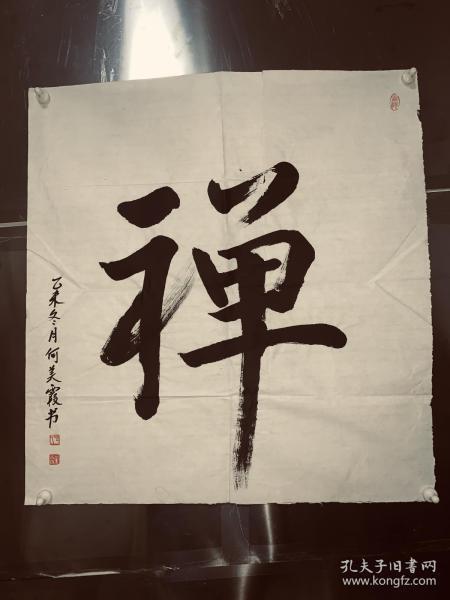 禅
乙未冬月何美霞书
孔夫子旧书网
www.kongfz.com